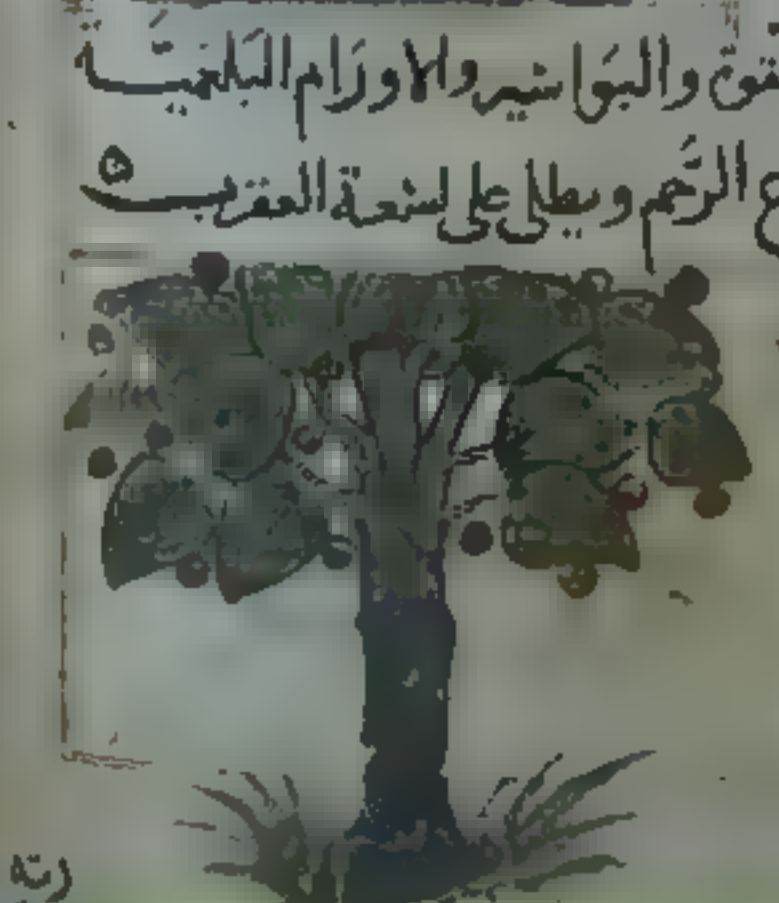 والبواسير والاورام البلغمية
الرحم ويطلى على لسعة العقرب ه